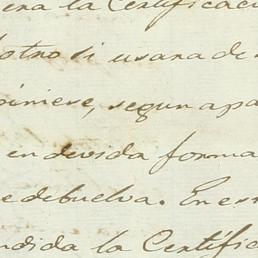 era la Certificaci
otro si usara de
biniese, segun apa
en devida forma
e debuelva. En es
ndida la Certific